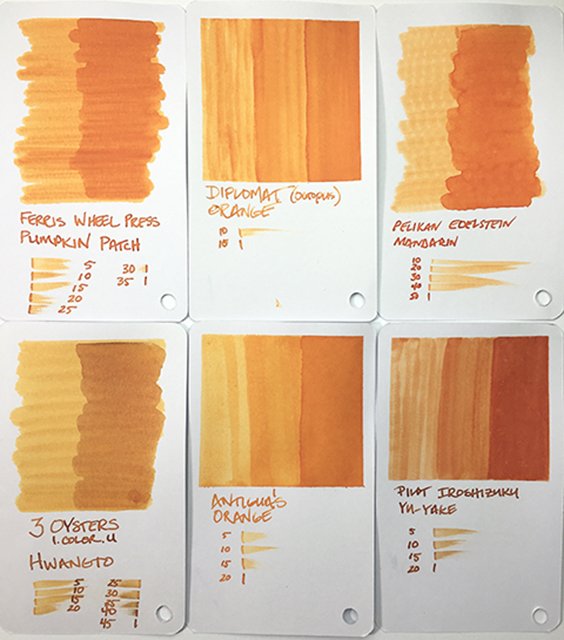 FERRIS WHEEL PRESS
PUMPKIN PATCH
5
10
15
20
25
30
35
DIPLOMAT (OCTOPUS)
ORANGE
10
15
PELIKAN EDELSTEIN
MANDARIN
10
20
30
40
50
3 OYSTERS
I.COLOR.U
HWANGTO
5
10
15
20
25
30
35
40
45
ANTIGUA'S
ORANGE
5
10
15
20
PILOT IROSHIZUKU
YU-YAKE
5
10
15
20